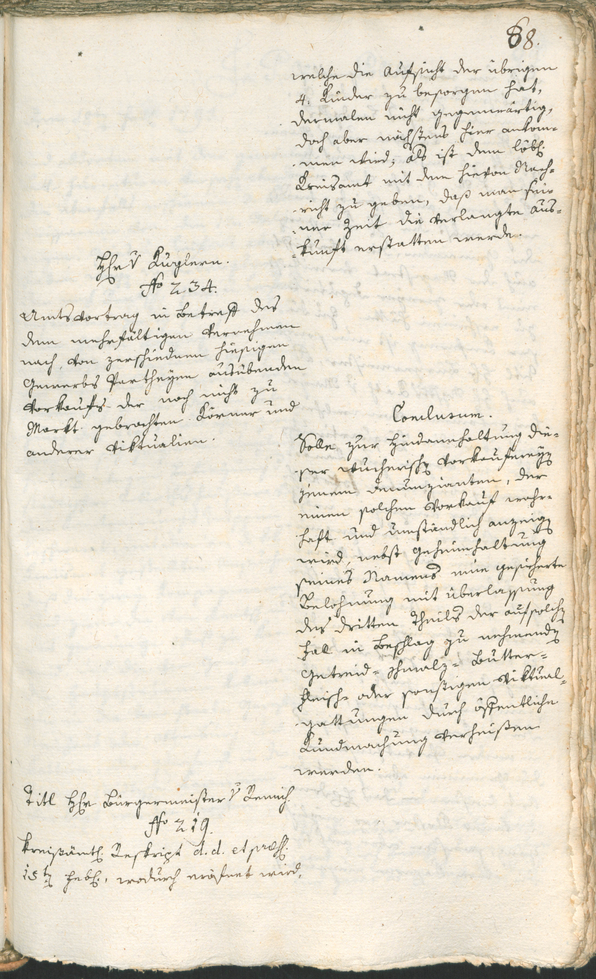 68.
welche die Aufsicht der übrigen
4. Kinder zu besorgen hat,
dermalen nicht gegenwärtig,
doch aber nächstens hier ankom-
men wird; als ist dem löbl:
Kreisamt mit dem hievon Nach-
richt zu geben, daß man sei-
ner Zeit die verlangte Aus-
kunft erstatten werde.
Hr v Kuglern.
No 234.
Amtsvortrag in Betreff des
dem mehrfältigen Vernehmen
nach, von zerschiednen hiesigen
Gewerbs Partheyen ausübenden
Vorkaufs der noch nicht zu
Markt gebrachten Körner und
anderer Viktualien.
Conclusum.
Solle zur Hindannhaltung die-
ser wucherischen Vorkäufereyen
jenem Denunzianten, der
einen solchen Vorkauf wahr-
haft und umständlich anzeigen
wird, nebst Geheimhaltung
seines Namens eine gesicherte
Belohnung mit Überlassung
des dritten Theils der auf solchen
Fal in Beschlag zu nehmenden
Getreid- Schmalz- Butter-
Fleisch- oder sonstigen Viktual-
gattungen durch öffentliche
Kundmachung verheißen
werden.
Titl Hr Bürgermeister v Remich.
No 219.
Kreisämtl: Reskript d.d. et præs:
15ten Febr:, wodurch eröfnet wird,